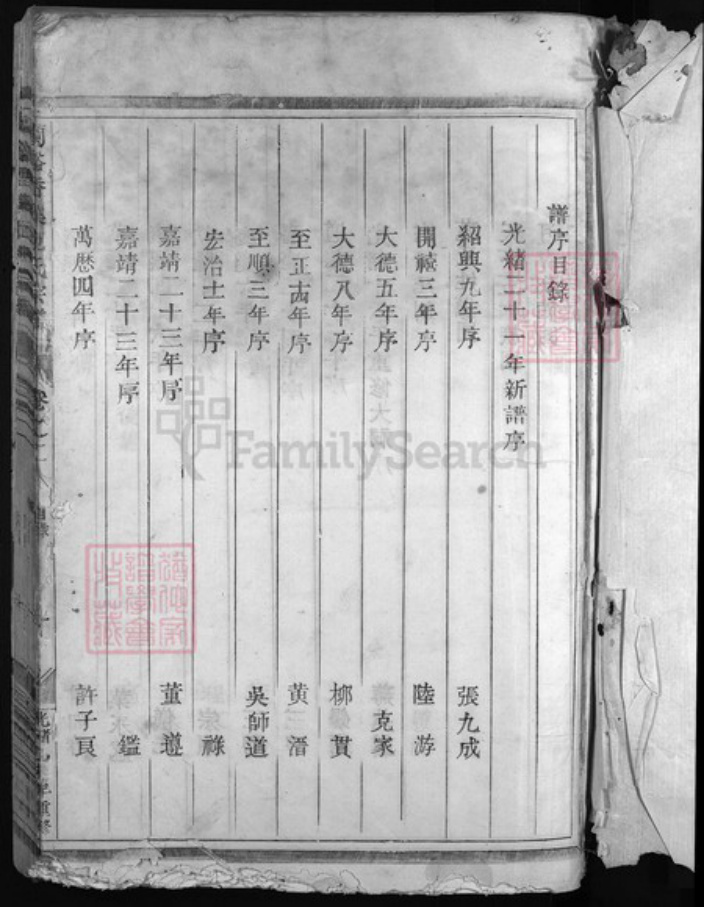 譜序目錄
光緒二十一年新譜序
紹興九年序 張九成
開禧三年序 陸游
大德五年序 克家
大德八年序 柳貫
至正十四年序 黃溍
至順三年序 吳師道
宏治十一年序 宗祿
嘉靖二十三年序 董遵
嘉靖二十三年序 鑑
萬歷四年序 許子良
FamilySearch